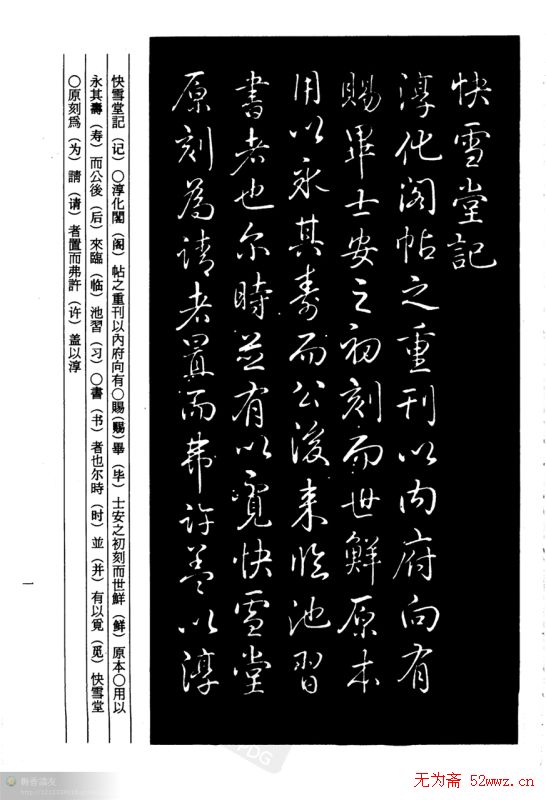 快雪堂記
淳化閣帖之重刊以内府向有
賜畢士安之初刻而世鮮原本
用以永其壽而公後来臨池習
書者也尔時並有以覓快雪堂
原刻為請者置而弗許蓋以淳
快雪堂記（记）○淳化閣（阁）帖之重刊以內府向有○賜（赐）畢（毕）士安之初刻而世鮮（鲜）原本○用以
永其壽（寿）而公後（后）來臨（临）池習（习）○書（书）者也尔時（时）並（并）有以覓（觅）快雪堂
○原刻爲（为）請（请）者置而弗許（许）蓋以淳
一
无为斋 52wwz.cn
PDG